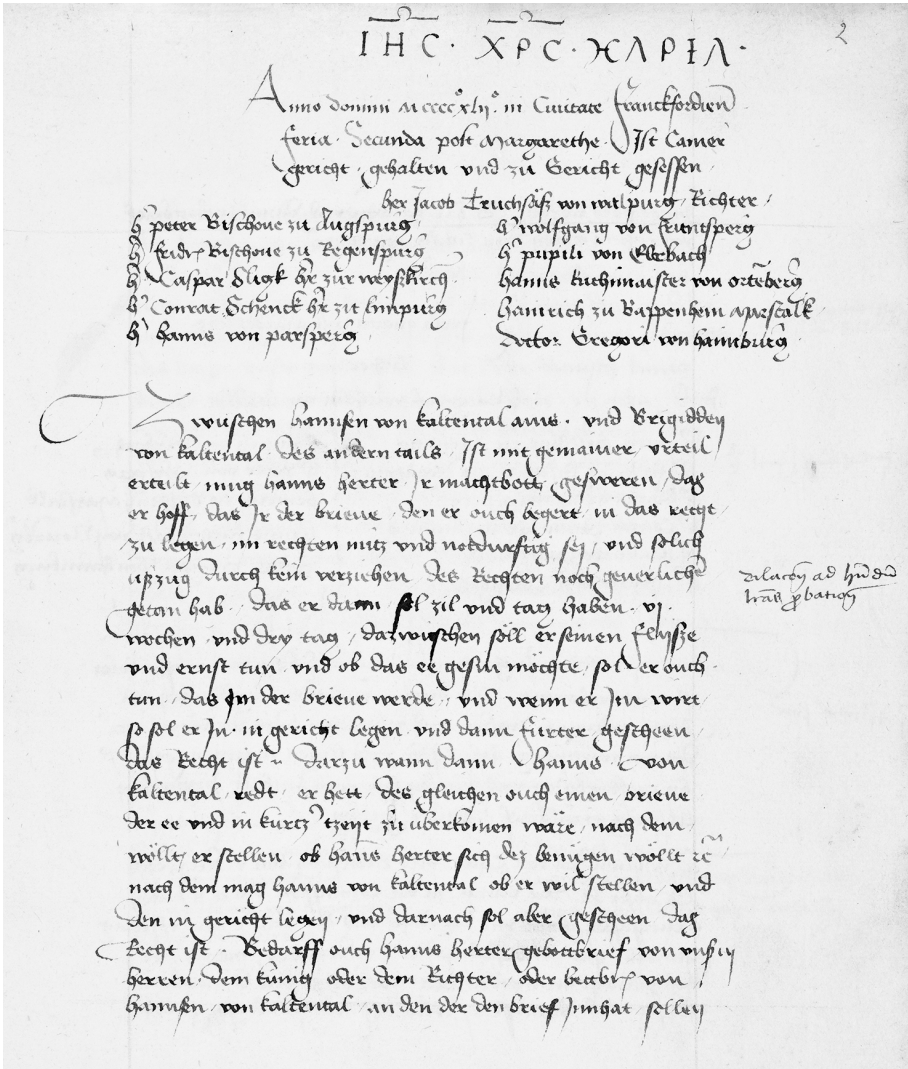 IHC · XPC · MARIA ·
2
Anno domini Mccccº xlijº in Civitate Franckfordien
feria Secunda post Margarethe Ist Camer
gericht gehalten und zu Gericht gesessen
her Jacob Truchsäsz von walpurg Richter
h' peter Bischoue zu Augspurg
h' fridr Bischoue zu Regenspurg
h' Caspar Sligk h'r zur weyszkirch
h' Conrat Schenck h'r zu limpurg
h' hanns von parsperg
h' wolfgang von fruntsperg
h' pupili von Ellrbach
hanns kuchinmaister von ortēberg
Hainrich zu Bappenheim Marscalk
doctor Gregori von haimburg
Zwuschen hannsen von kaltental ains · und Brigidden
von kaltental des andern tails Ist mit gemainer vrteil
erteilt mug hanns herter Ir machtbott gesweren das
er hoff das Ir der brieue den er ouch begert in das recht
zu legen im rechten nutz vnd notdurftig sej und solich
uszzug durch kein verziehen des Rechten noch geuerliche
getan hab das er dann sol zil vnd tag haben vj
wochen und dry tag dazwischen söll er seinen flysze
vnd ernst tun vnd ob das ee gesin möchte sol er ouch
tun das Im der brieue werde vnd wenn er Im wirt
so sol er In in gericht legen vnd dann furter gescheen
das Recht ist darzu wann dann hanns von
kaltental redt er hett des gleichen ouch einen brieue
der ee vnd in kurtz' tzeijt zu überkomen wäre nach dem
wöllt er stellen ob hanns herter sich dez benügen wöllt rc
nach dem mag hanns von kaltental ob er wil stellen vnd
den in gericht legen vnd darnach sol aber gescheen das
Recht ist · Bedarff ouch hanns herter gebottbrief von vnsm
herren dem künig oder dem Richter oder bettbr von
hannsen von kaltental an den der den brief Innhat sollen
dilacōn ad
lrās pbation